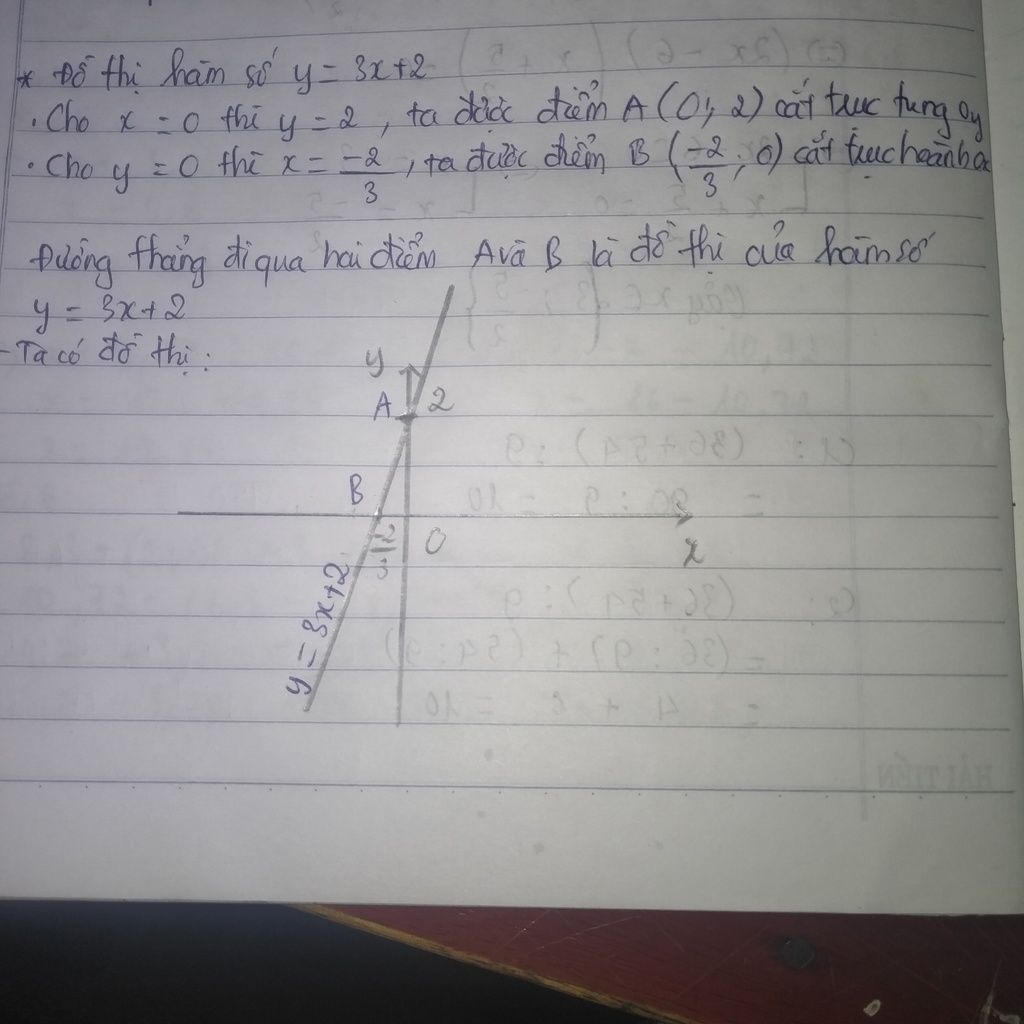 * Đồ thị hàm số y = 3x+2
. Cho x = 0 thì y = 2, ta được điểm A (0; 2) cắt trục tung Oy
. Cho y = 0 thì x = -2/3, ta được điểm B (-2/3; 0) cắt trục hoành Ox
Đường thẳng đi qua hai điểm A và B là đồ thị của hàm số
y = 3x+2
- Ta có đồ thị:
y
A 2
B
-2/3 O
x
y = 3x+2
HẢI TIẾN